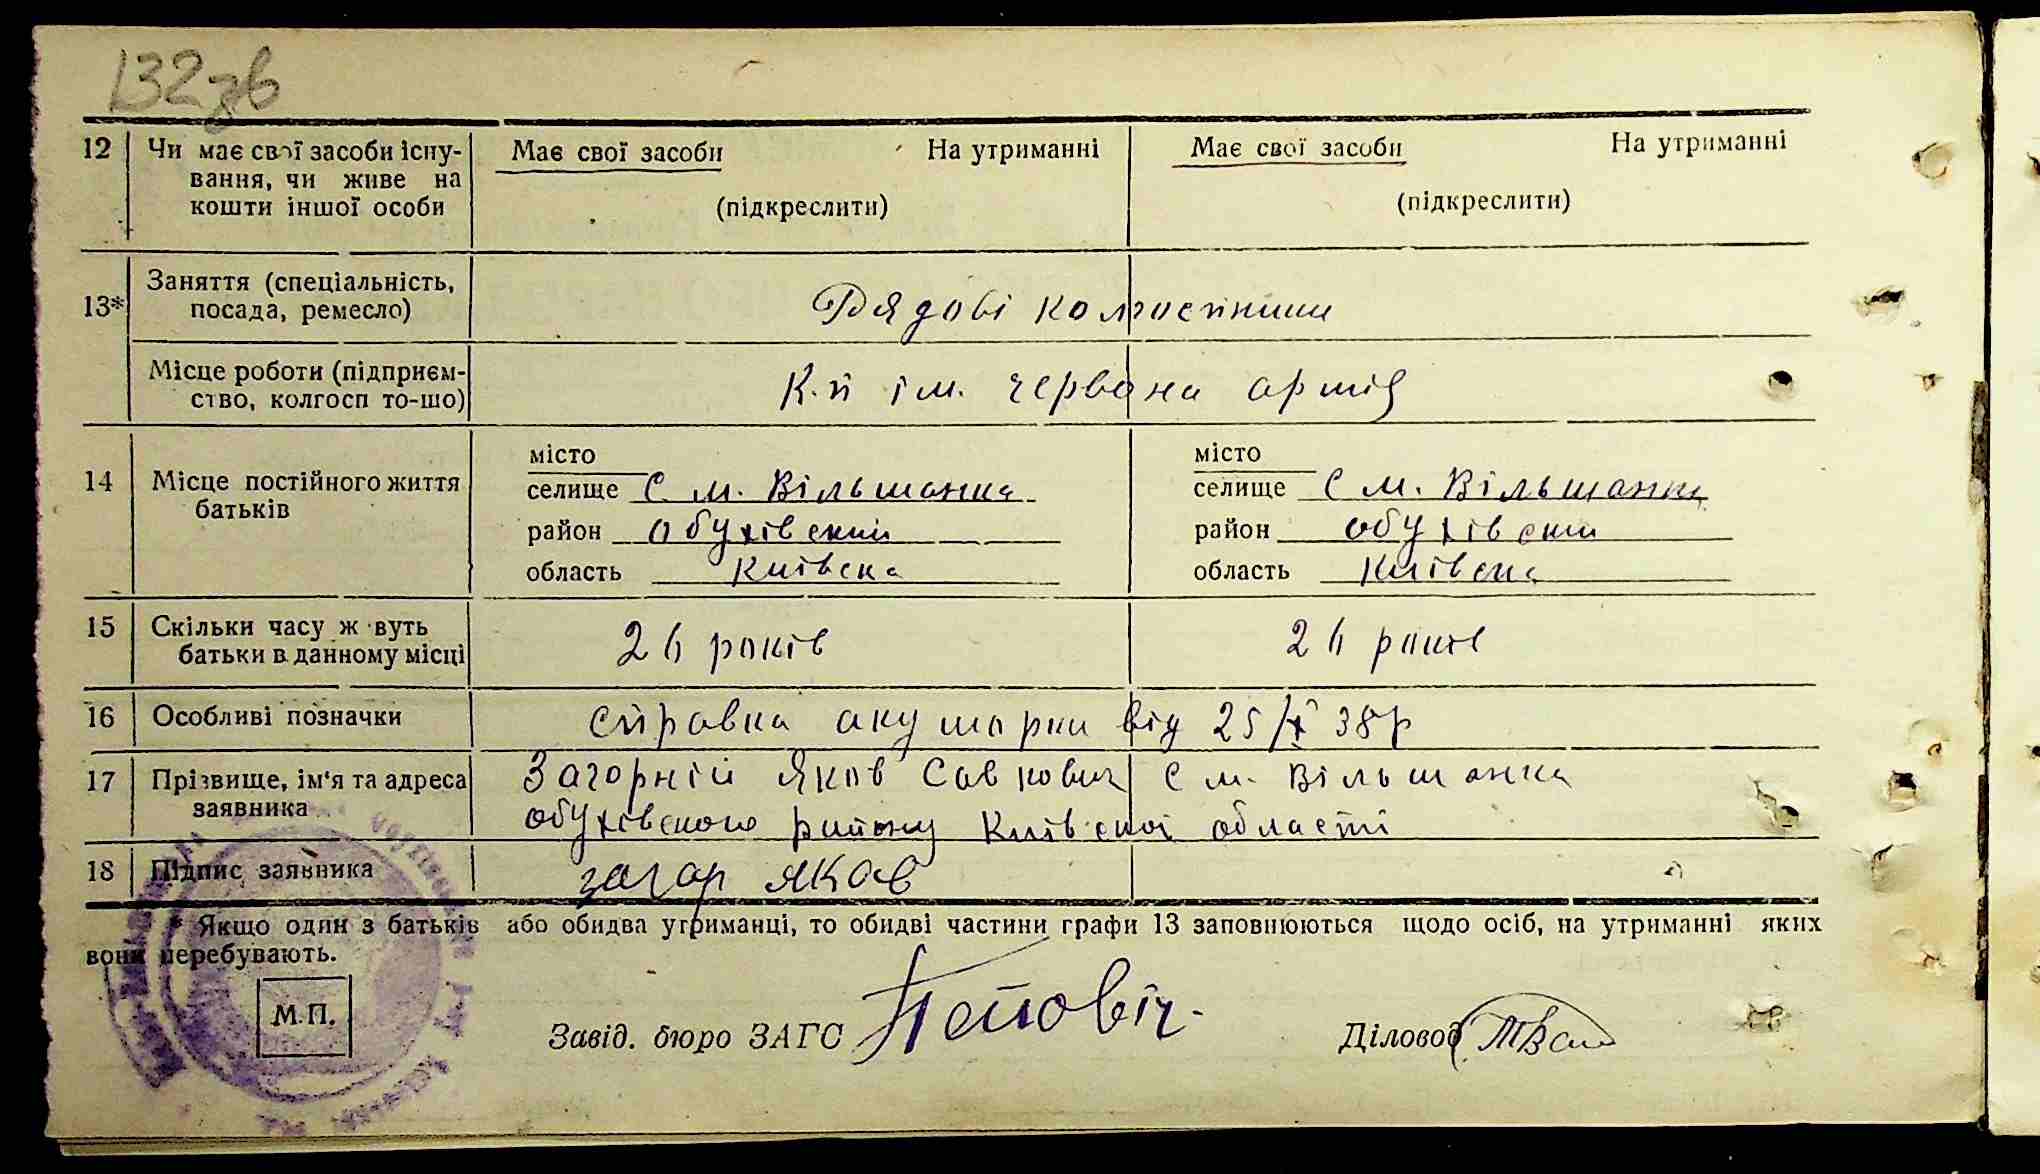 132зв
12 Чи має свої засоби існу- Має свої засоби На утриманні Має свої засоби На утриманні
вання, чи живе на
кошти іншої особи (підкреслити) (підкреслити)
13* Заняття (спеціальність,
посада, ремесло) Рядові колгоспники
Місце роботи (підприєм-
ство, колгосп то-що) К.п ім. червона армія
місто місто
14 Місце постійного життя селище С. м. Вільшанка селище С м. Вільшанка
батьків район Обухівский район Обухівский
область Київска область Київска
15 Скільки часу ж вуть
батьки в данному місці 26 років 26 років
16 Особливі позначки справка акушарки від 25/X 38р
17 Прізвище, ім'я та адреса Загорній Яков Савкович С м. Вільшанка
заявника обухівского району Київскої області
18 Підпис заявника загор яков
* Якщо один з батьків або обидва утриманці, то обидві частини графи 13 заповнюються щодо осіб, на утриманні яких
вони перебувають.
М.П.
Завід. бюро ЗАГС Попович. Діловод